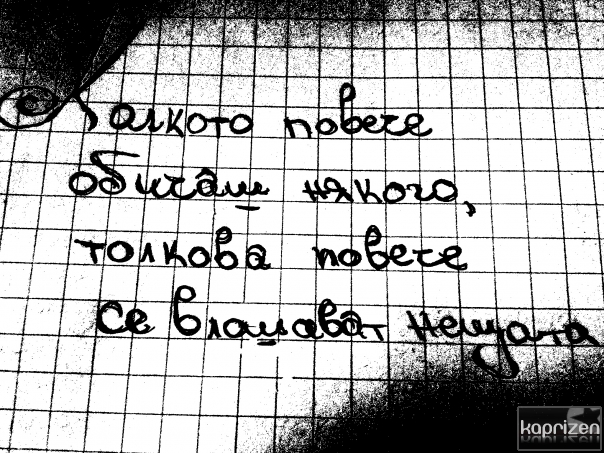 Колкото повече
обичаш някого,
толкова повече
се влошават нещата
kaprizen